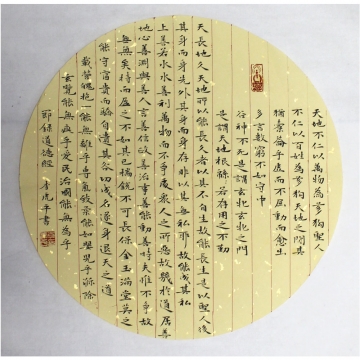 天地不仁以萬物為芻狗聖人
不仁以百姓為芻狗天地之間其
猶橐籥乎虛而不屈動而愈出
多言數窮不如守中
谷神不死是謂玄牝玄牝之門
是謂天地根綿若存用之不勤
天長地久天地所以能長久者以其不自生故能長生是以聖人後
其身而身先外其身而身存非以其無私耶故能成其私
上善若水水善利萬物而不爭處衆人之所惡故幾於道居善
地心善淵與善人言善信政善治事善能動善時夫惟不爭故
無矣持而盈之不如其已揣銳不可長保金玉滿堂莫之
能守富貴而驕自遺其咎功成名遂身退天之道
載營魄抱一能無離乎專氣致柔能如嬰兒乎滌除
玄覽能無疵乎愛民治國能無為乎
節錄道德經 書